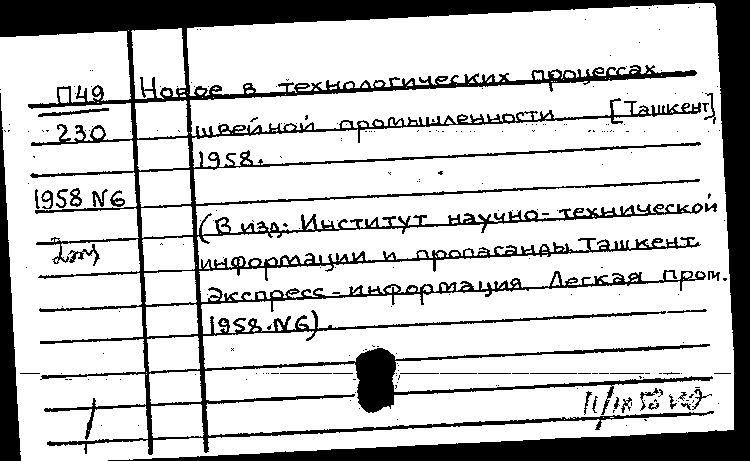 П49 Новое в технологических процессах
230 швейной промышленности [Ташкент]
1958.
1958 N6
(В изд: Институт научно-технической
2эк
информации и пропаганды. Ташкент.
Экспресс-информация. Легкая пром.
1958.N6).